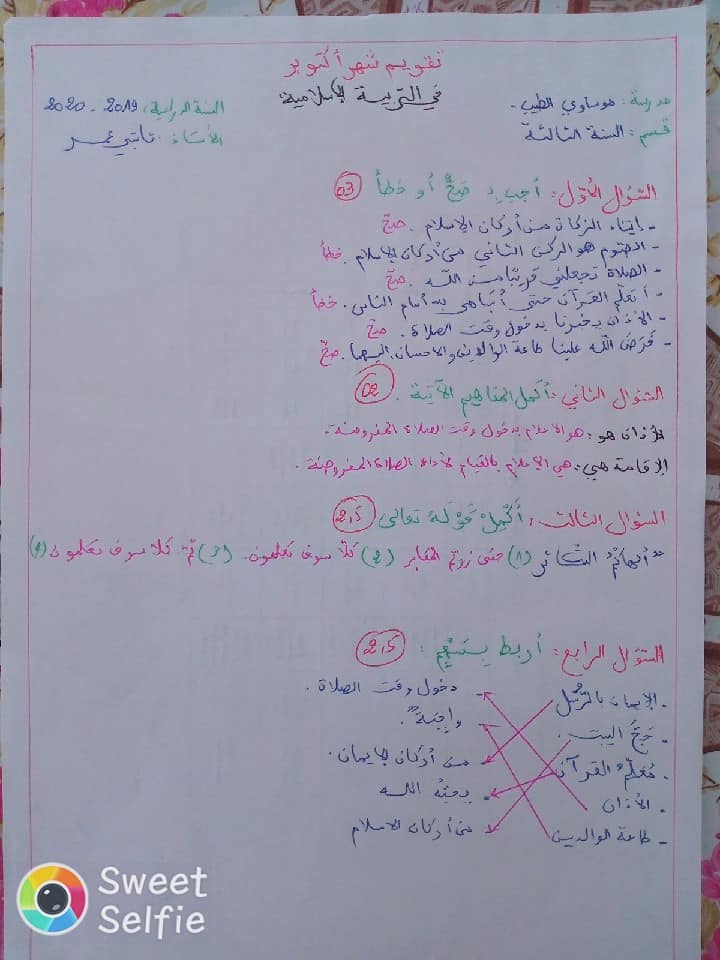 تقويم شهر أكتوبر
في التربية الإسلامية
مدرسة: موساوي الطيب.
السنة الدراسية: 2019 - 2020
قسم: السنة الثالثة
الأستاذ: تابتي عمر
السؤال الأول: أجب بـ صحّ أو خطأ 03
- إيتاء الزكاة من أركان الإسلام. صحّ
- الصوم هو الركن الثاني من أركان الإسلام. خطأ
- الصلاة تجعلني قريبًا من الله. صحّ
- أتعلّم القرآن حتى أتباهى به أمام الناس. خطأ
- الأذان يخبرنا بدخول وقت الصلاة. صحّ
- فَرَضَ الله علينا طاعة الوالدين والإحسان إليهما. صحّ
السؤال الثاني: أكمل المفاهيم الآتية. 02
الأذان هو: هو الإعلام بدخول وقت الصلاة المفروضة.
الإقامة هي: هي الإعلام بالقيام لأداء الصلاة المفروضة.
السؤال الثالث: أَكْمِلْ قَوْلَهُ تعالى 2,5
"ألهاكمُ التكاثر (1) حتى زرتم المقابر (2) كلّا سوف تعلمون. (3) ثمّ كلا سوف تعلمون (4)
السؤال الرابع: أربط بسهم: 2,5
- الإيمان بالرُّسل
- دخول وقت الصلاة.
- حَجُّ البيت.
- واجبةٌ.
- مُعَلِّمُ القرآن
- من أركان الإيمان.
- الأذان
- يحبّهُ الله
- طاعة الوالدين
- من أركان الإسلام
Sweet
Selfie